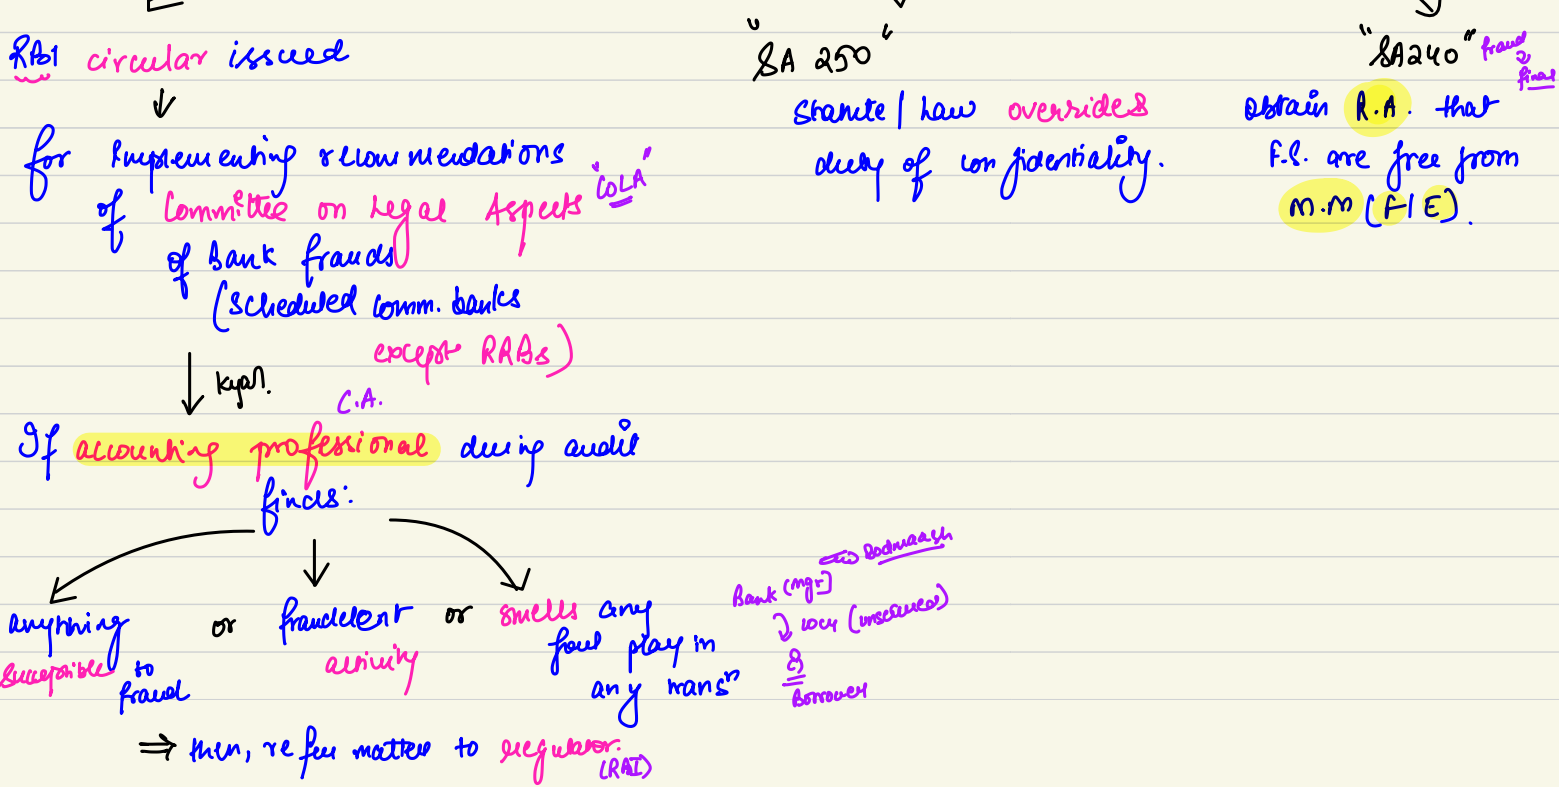 RBI circular issued
for Implementing recommendations
of Committee on Legal Aspects "COLA"
of Bank frauds
(scheduled comm. banks
except RRBs)
kya?
C.A.
If accounting professional during audit
finds:
anything susceptible to fraud
or
fraudulent activity
or
smells any foul play in any transn
⇒ then, refer matter to regulator.
(RBI)
"SA 250"
Statute / Law overrides
duty of confidentiality.
"SA240" fraud
Obtain R.A. that
F.S. are free from
M.M (F/E).
Badmaash
Bank (mgr)
(unsecured)
Borrower